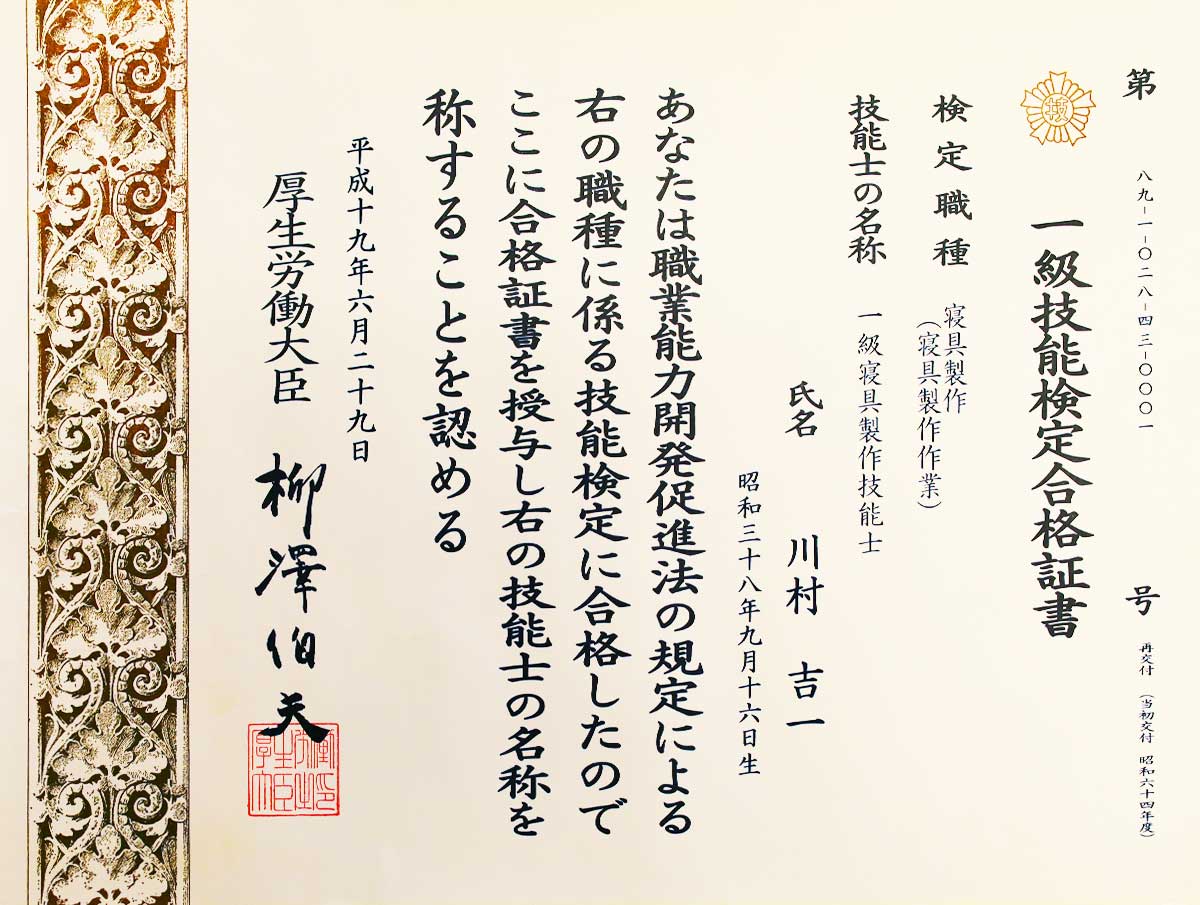 第 八九-一-〇二八-四三-〇〇〇一 号 再交付 (当初交付 昭和六十四年度)
技
一級技能検定合格証書
検定職種 寝具製作
(寝具製作作業)
技能士の名称 一級寝具製作技能士
氏名 川村 吉一
昭和三十八年九月十六日生
あなたは職業能力開発促進法の規定による
右の職種に係る技能検定に合格したので
ここに合格証書を授与し右の技能士の名称を
称することを認める
平成十九年六月二十九日
厚生労働大臣 柳澤伯夫